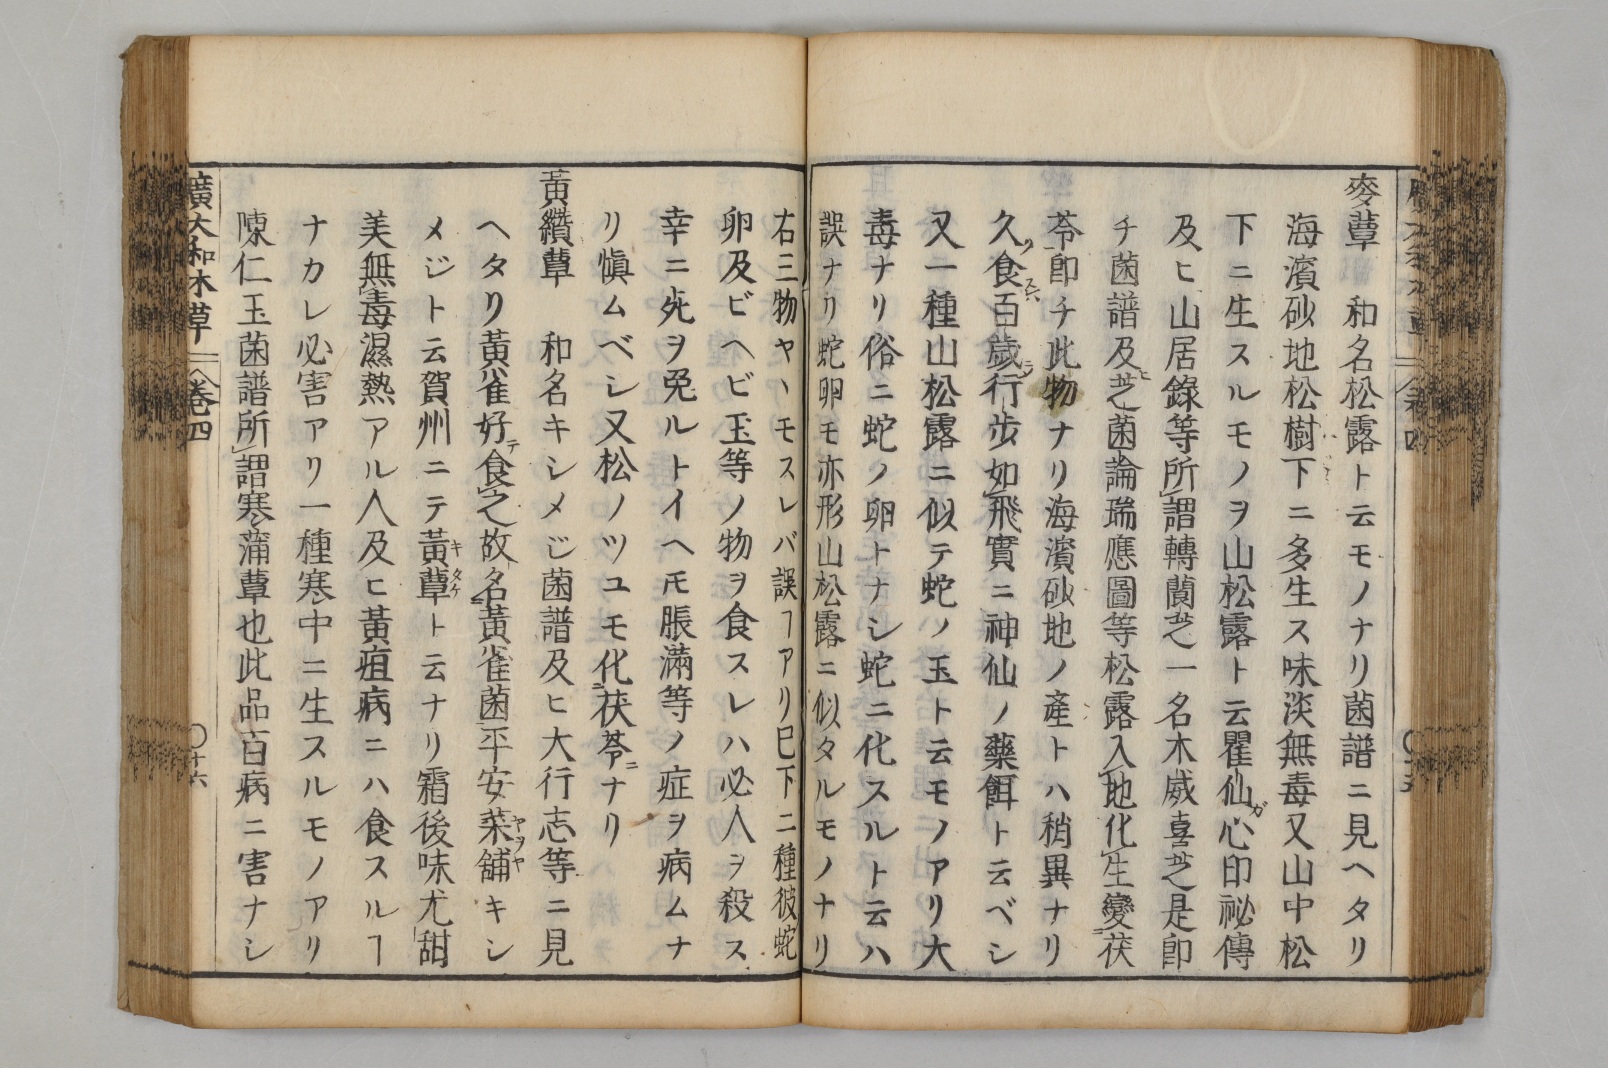 麥蕈　和名松露ト云モノナリ菌譜ニ見ヘタリ
海濱砂地松樹下ニ多生ス味淡無毒又山中松
下ニ生スルモノヲ山松露ト云瞿仙心印祕傳
及ヒ山居錄等所謂轉閬芝一名木威喜芝是卽
チ菌譜及ヒ芝菌論瑞應圖等松露入地化生變茯
苓卽チ此物ナリ海濱砂地ノ產トハ稍異ナリ
久食百歲行步如飛實ニ神仙ノ藥餌ト云ベシ
又一種山松露ニ似テ蛇ノ玉ト云モノアリ大
毒ナリ俗ニ蛇ノ卵トナシ蛇ニ化スルト云ハ
誤ナリ蛇卵モ亦形山松露ニ似タルモノナリ
右三物ヤヽモスレバ誤ヿアリ巳下二種彼蛇
卵及ビヘビ玉等ノ物ヲ食スレハ必人ヲ殺ス
幸ニ死ヲ免ルトイヘモ脹滿等ノ症ヲ病ムナ
リ愼ムベシ又松ノツユモ化茯苓ニナリ
黃纘蕈　和名キシメジ菌譜及ヒ大行志等ニ見
ヘタリ黃雀好テ食之故名黃雀菌平安菜舖ヤヲヤキシ
メジト云賀州ニテ黃蕈キタケト云ナリ霜後味尤甜
美無毒濕熱アル人及ヒ黃疸病ニハ食スルヿ
ナカレ必害アリ一種寒中ニ生スルモノアリ
陳仁玉菌譜所謂寒蒲蕈也此品百病ニ害ナシ
廣大和本草　卷四　〇十六